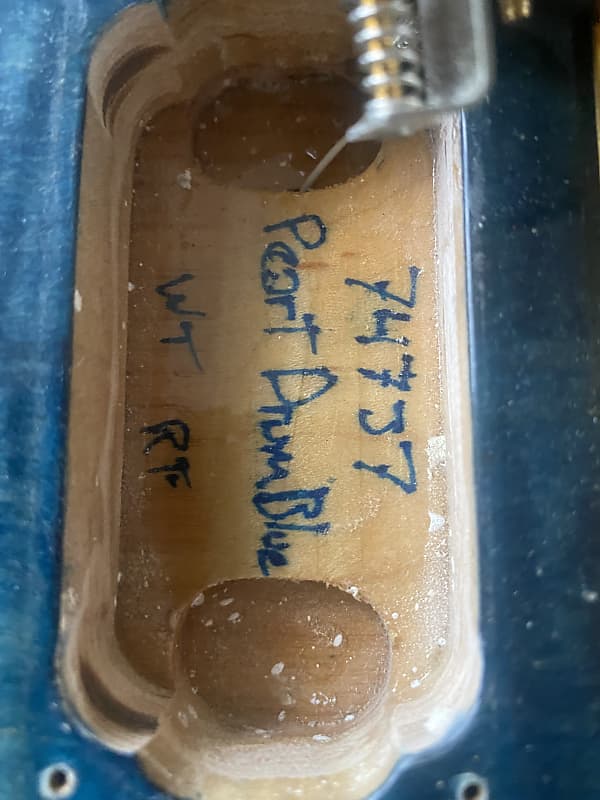 74737
Peart Drum Blue
WT RT